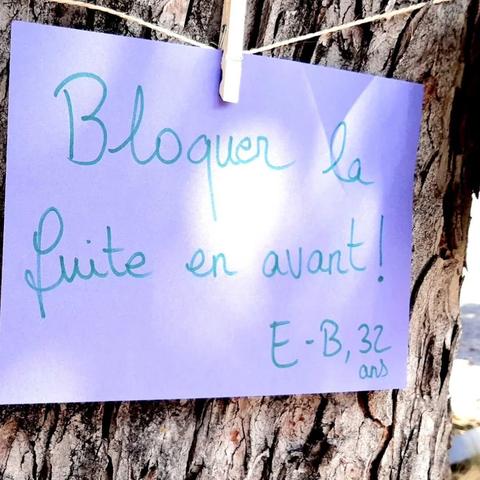 Bloquer la
fuite en avant!
E-B, 32
ans